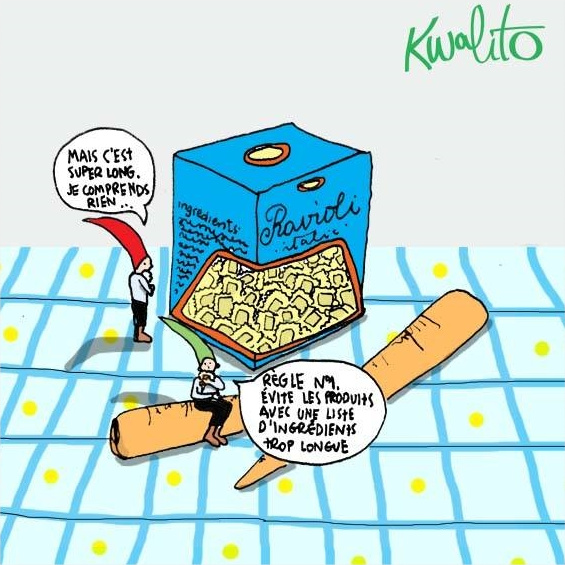 Kwalito
MAIS C'EST
SUPER LONG.
JE COMPRENDS
RIEN...
ingrédients
Ravioli
italie
RÈGLE N°1.
ÉVITE LES PRODUITS
AVEC UNE LISTE
D'INGRÉDIENTS
TROP LONGUE